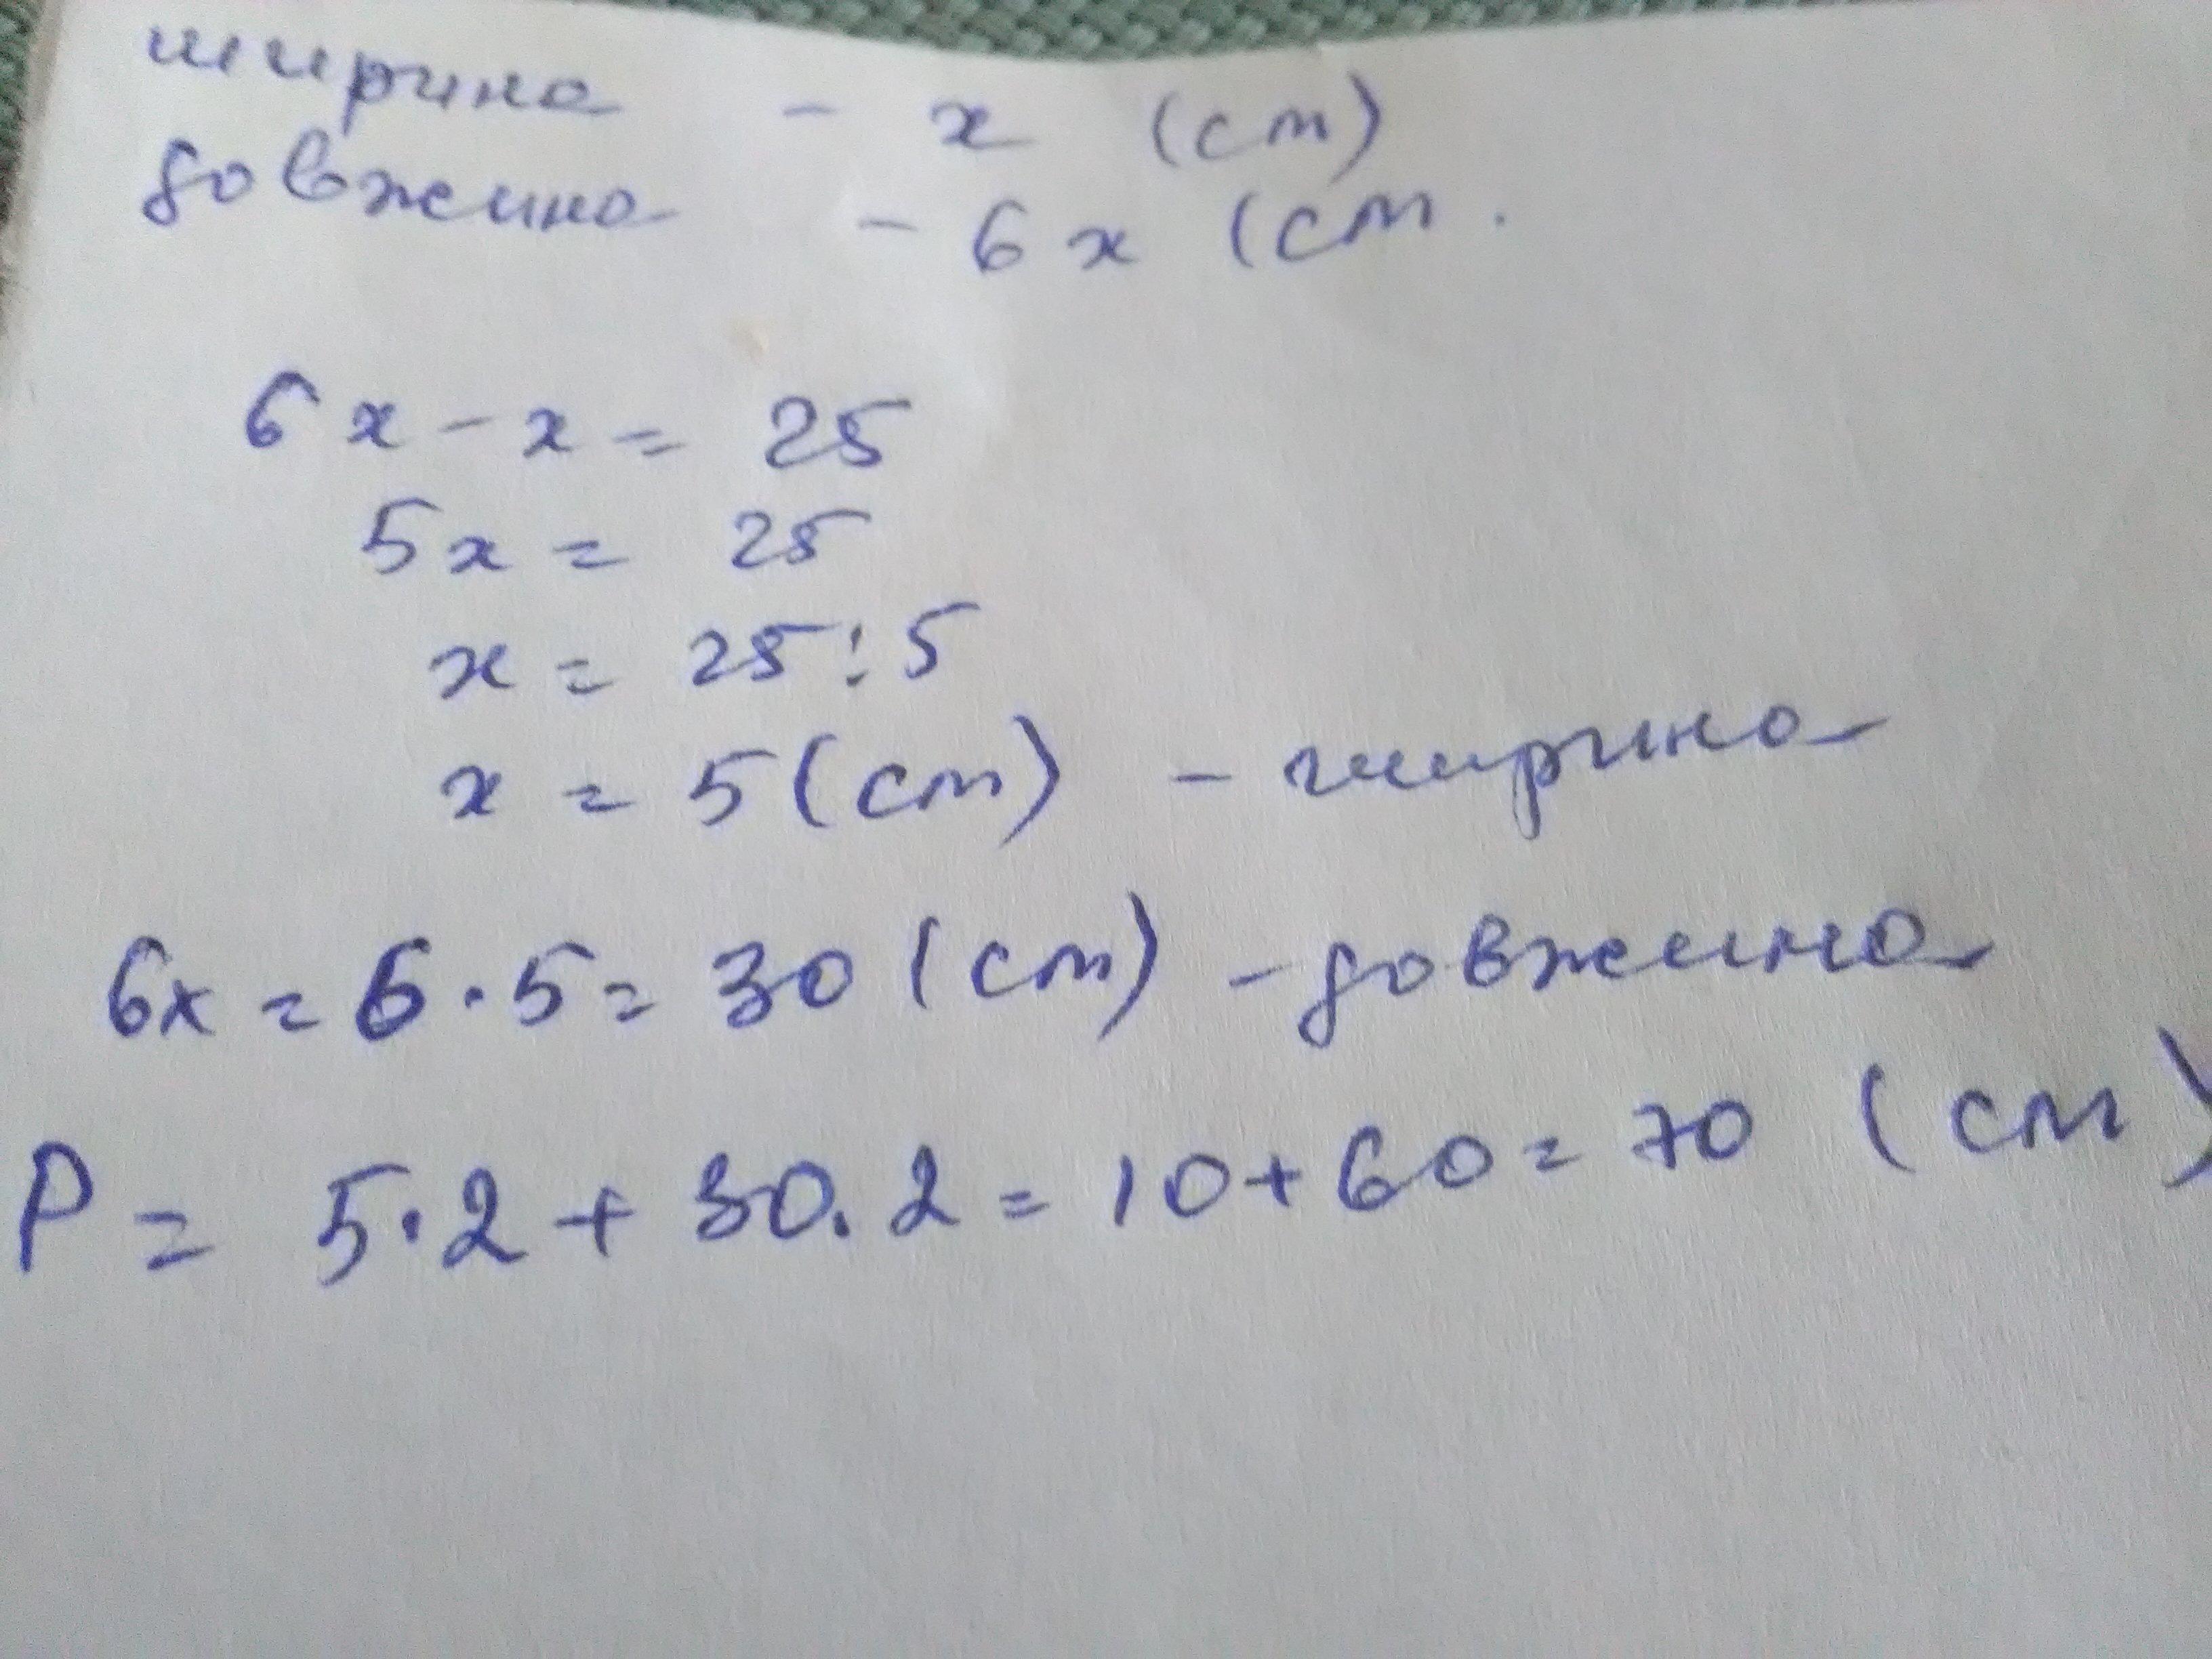 ширина - x (см)
довжина - 6x (см.
6x - x = 25
5x = 25
x = 25 : 5
x = 5 (см) - ширина
6x = 6 · 5 = 30 (см) - довжина
P = 5 · 2 + 30 . 2 = 10 + 60 = 70 (см)